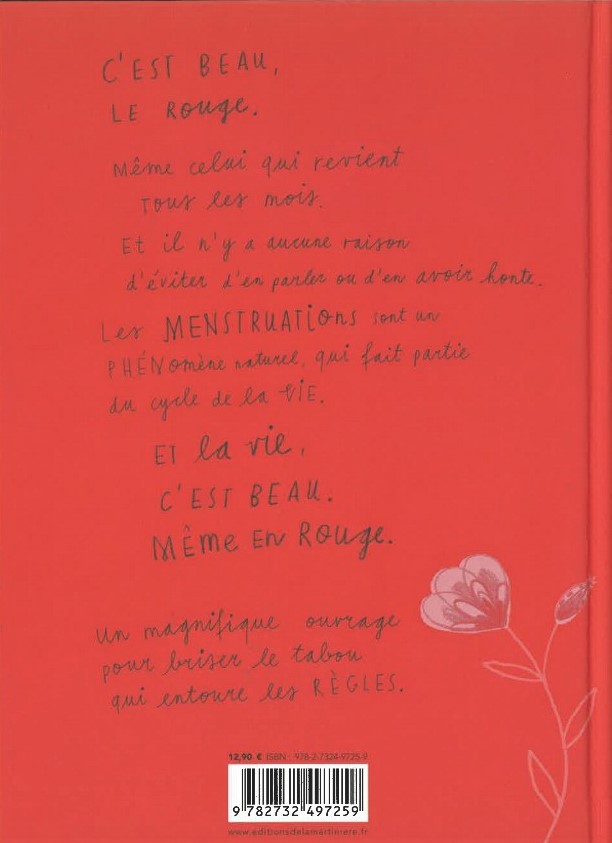 C'EST BEAU,
LE ROUGE.
Même celui qui revient
TOUS les mois.
Et il n'y a aucune raison
d'éviter d'en parler ou d'en avoir honte.
Les MENSTRUATIONS sont un
PHÉNomène naturel, qui fait partie
du cycle de la VIE.
ET la vie,
C'EST BEAU.
MÊME EN ROUGE.
Un magnifique ouvrage
pour briser le tabou
qui entoure les RÈGLES.
12,90 € ISBN : 978-2-7324-9725-9
9 782732 497259
www.editionsdelamartiniere.fr